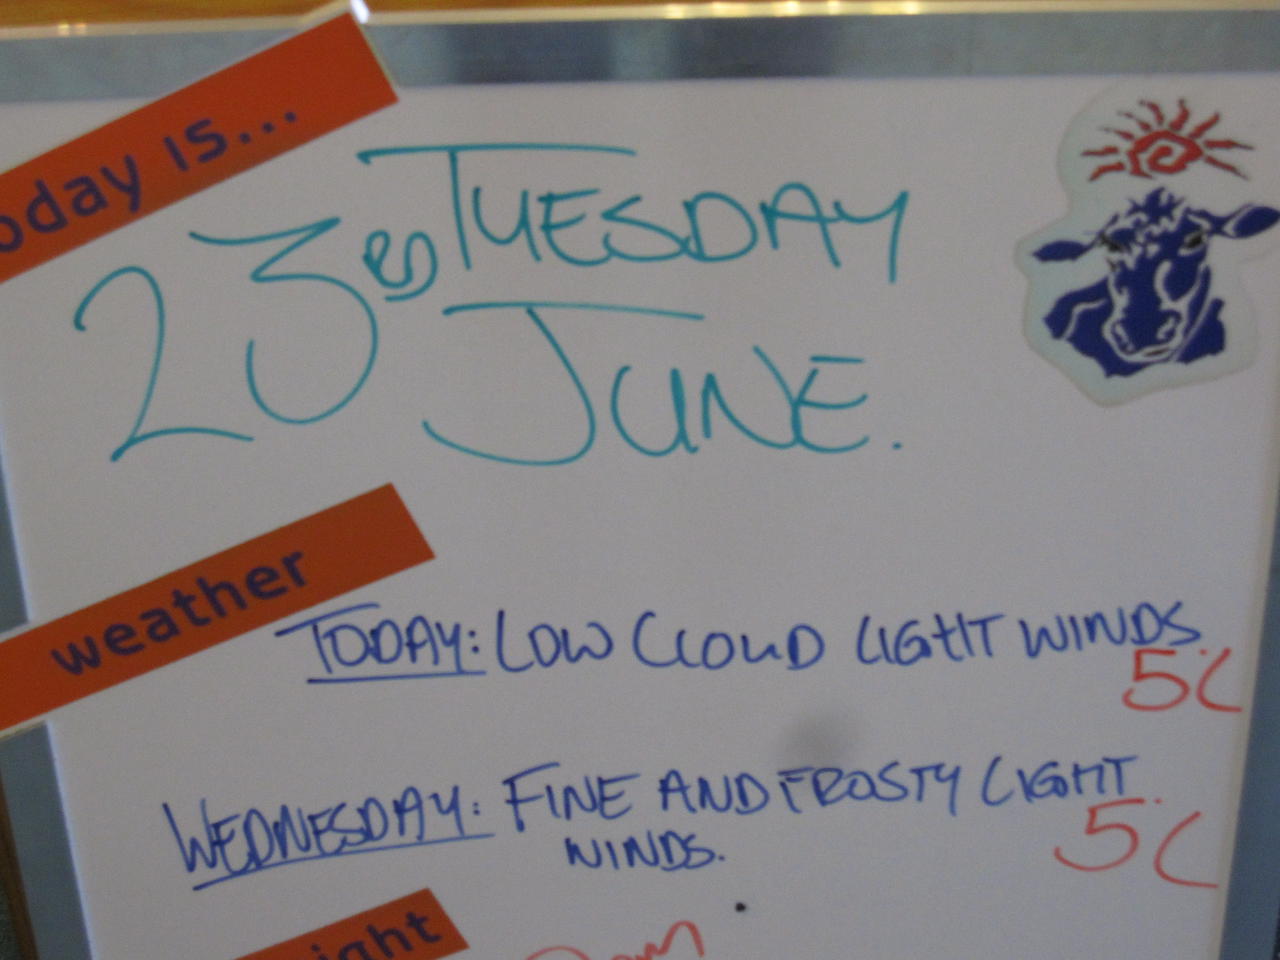 oday is...
23RD TUESDAY
JUNE.
weather
TODAY: LOW CLOUD LIGHT WINDS
5°C
WEDNESDAY: FINE AND FROSTY LIGHT
WINDS.
5°C
ight